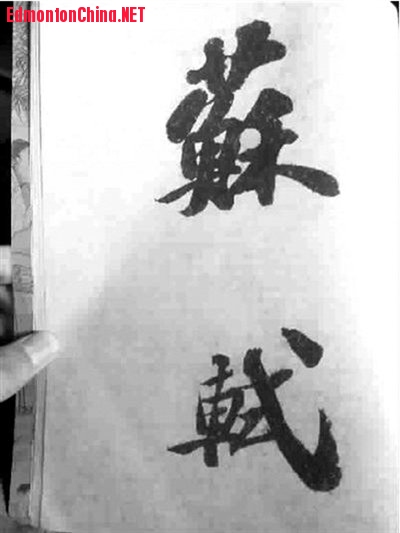 EdmontonChina.NET
蘇
軾